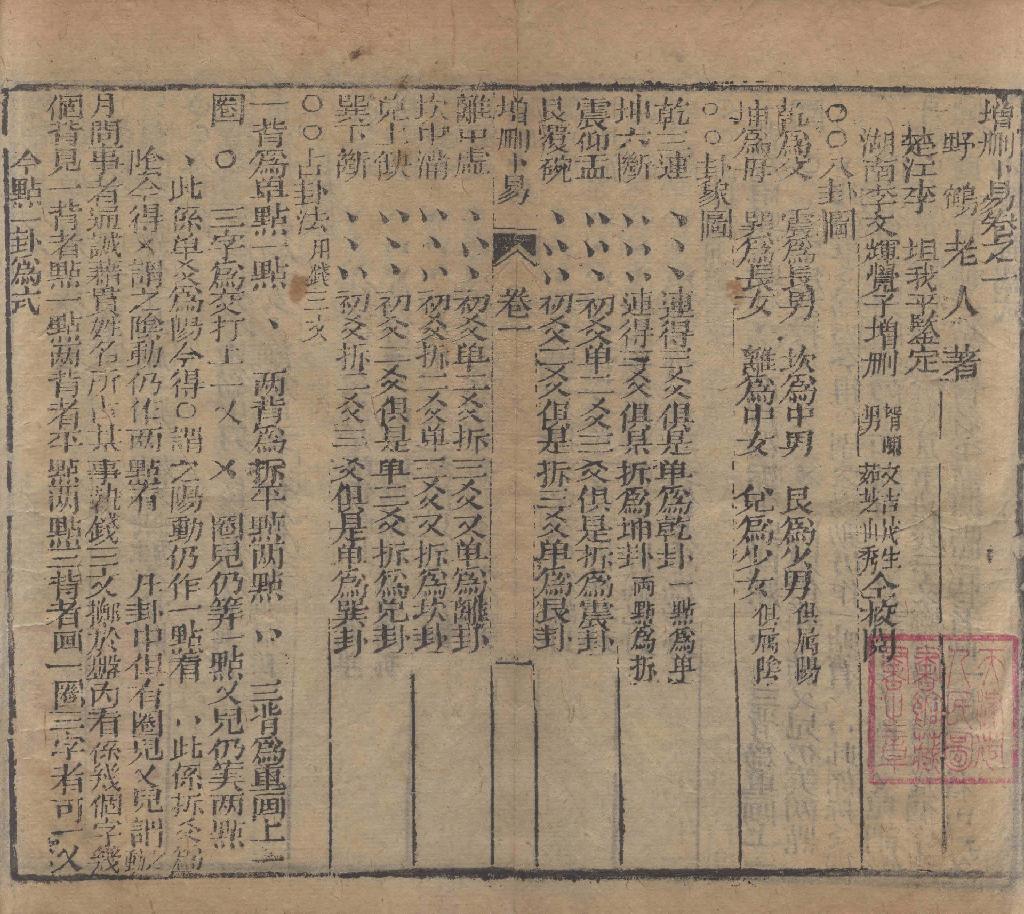 增刪卜易卷之一
野鶴老人著
楚江李 坦我平鑒定
湖南李文輝覺子增刪 壻陳文吉茂生 男 茹芝山秀 仝校閱
○○八卦圖
乾為父 震為長男 坎為中男 艮為少男 俱屬陽
坤為母 巽為長女 離為中女 兌為少女 俱屬陰
○○卦象圖
乾三連 、、、 連得三爻俱是单為乾卦 一點為单
坤六斷 〃〃〃 連得三爻俱是拆為坤卦 両點為拆
震仰盂 〃〃、 初爻单二爻三爻俱是拆為震卦
艮覆碗 、〃〃 初爻二爻俱是拆三爻单為艮卦
增刪卜易 卷一
離中虛 、〃、 初爻单二爻拆三爻又单為離卦
坎中滿 〃、〃 初爻拆二爻单三爻又拆為坎卦
兌上缺 〃、、 初爻二爻俱是单三爻拆為兌卦
巽下斷 、、〃 初爻拆二爻三爻俱是单為巽卦
○○占卦法 用錢三文
一背為单點一點 、 两背為拆平點两點 〃 三背為重画上一
圈 ○ 三字為交打上一乂 乂 圈兒仍算一點乂兒仍筭两點
、此係单爻為陽今得○謂之陽動仍作一點看 〃此係拆爻為
陰今得乂謂之陰動仍作两點看 凡卦中但有圈兒乂兒謂之動
月問事者通誠籍貫姓名所占某事執錢三文擲於盤內看係幾個字幾
個背見一背者點一點两背者平點两點三背者画一圈三字者可一乂
今點一卦為式